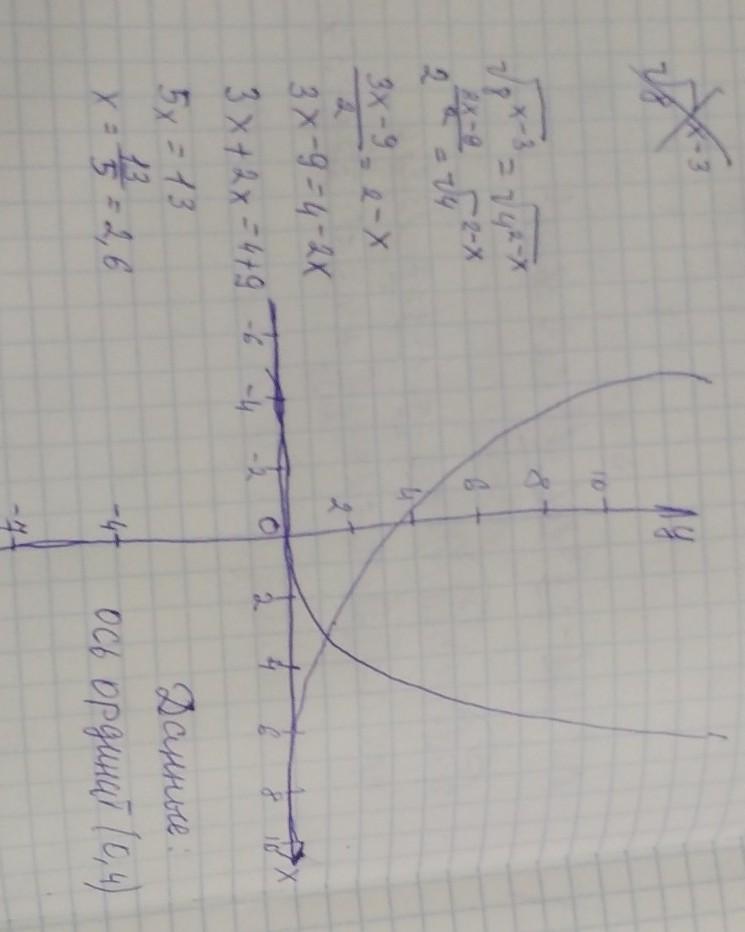 √8^(x-3)
√8^(x-3) = √4^(2-x)
2^((3x-9)/2) = √4^(2-x)
(3x-9)/2 = 2-x
3x-9=4-2x
3x+2x=4+9
5x=13
x = 13/5 = 2,6
y
10
8
6
4
2
-6 -4 -2 0 2 4 6 8 10 x
-4
Данные:
ось ординат (0,4)